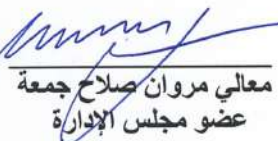 معالي مروان صلاح جمعة
عضو مجلس الإدارة